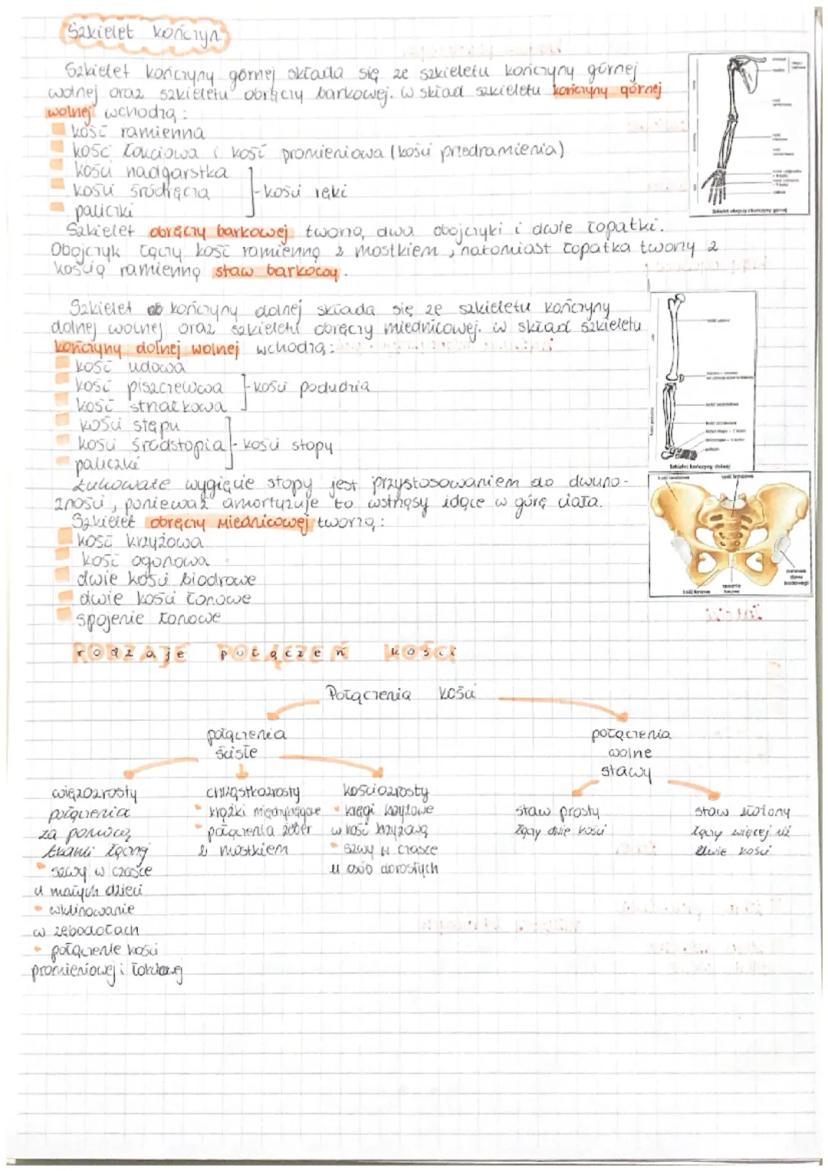 Szkielet kończyn
Szkielet kończyny górnej składa się ze szkieletu kończyny górnej
wolnej oraz szkieletu obręczy barkowej. W skład szkieletu kończyny górnej
wolnej wchodzą:
kość ramienna
kość łokciowa i kość promieniowa (kości przedramienia)
kości nadgarstka
kości śródręcza - kości ręki
paliczki
Szkielet obręczy barkowej tworzą dwa obojczyki i dwie łopatki.
Obojczyk łączy kość ramienną z mostkiem, natomiast łopatka tworzy z
kością ramienną staw barkowy.
Szkielet kończyny dolnej składa się ze szkieletu kończyny
dolnej wolnej oraz szkieletu obręczy miednicowej. W skład szkieletu
kończyny dolnej wolnej wchodzą:
kość udowa
kość piszczelowa - kości podudzia
kość strzałkowa
kości stępu
kości śródstopia - kości stopy
paliczki
Łukowate wygięcie stopy jest przystosowaniem do dwuno-
żności, ponieważ amortyzuje to wstrząsy idące w górę ciała.
Szkielet obręczy miednicowej tworzą:
kość krzyżowa
kość ogonowa
dwie kości biodrowe
dwie kości łonowe
spojenie łonowe
Szkielet obręczy i kończyny górnej
Szkielet kończyny dolnej
rodzaje połączeń kości
Połączenia kości
połączenia
ścisłe
połączenia
wolne
stawy
więzozrosty
połączenia
za pomocą
tkanki łącznej
szwy w czaszce
u małych dzieci
wklinowanie
w zębodołach
połączenie kości
promieniowej i łokciowej
chrząstkozrosty
krążki międzykręgowe
połączenia żeber
z mostkiem
kościozrosty
kręgi krzyżowe
w kość krzyżową
szwy w czaszce
u osób dorosłych
staw prosty
łączy dwie kości
staw złożony
łączy więcej niż
dwie kości